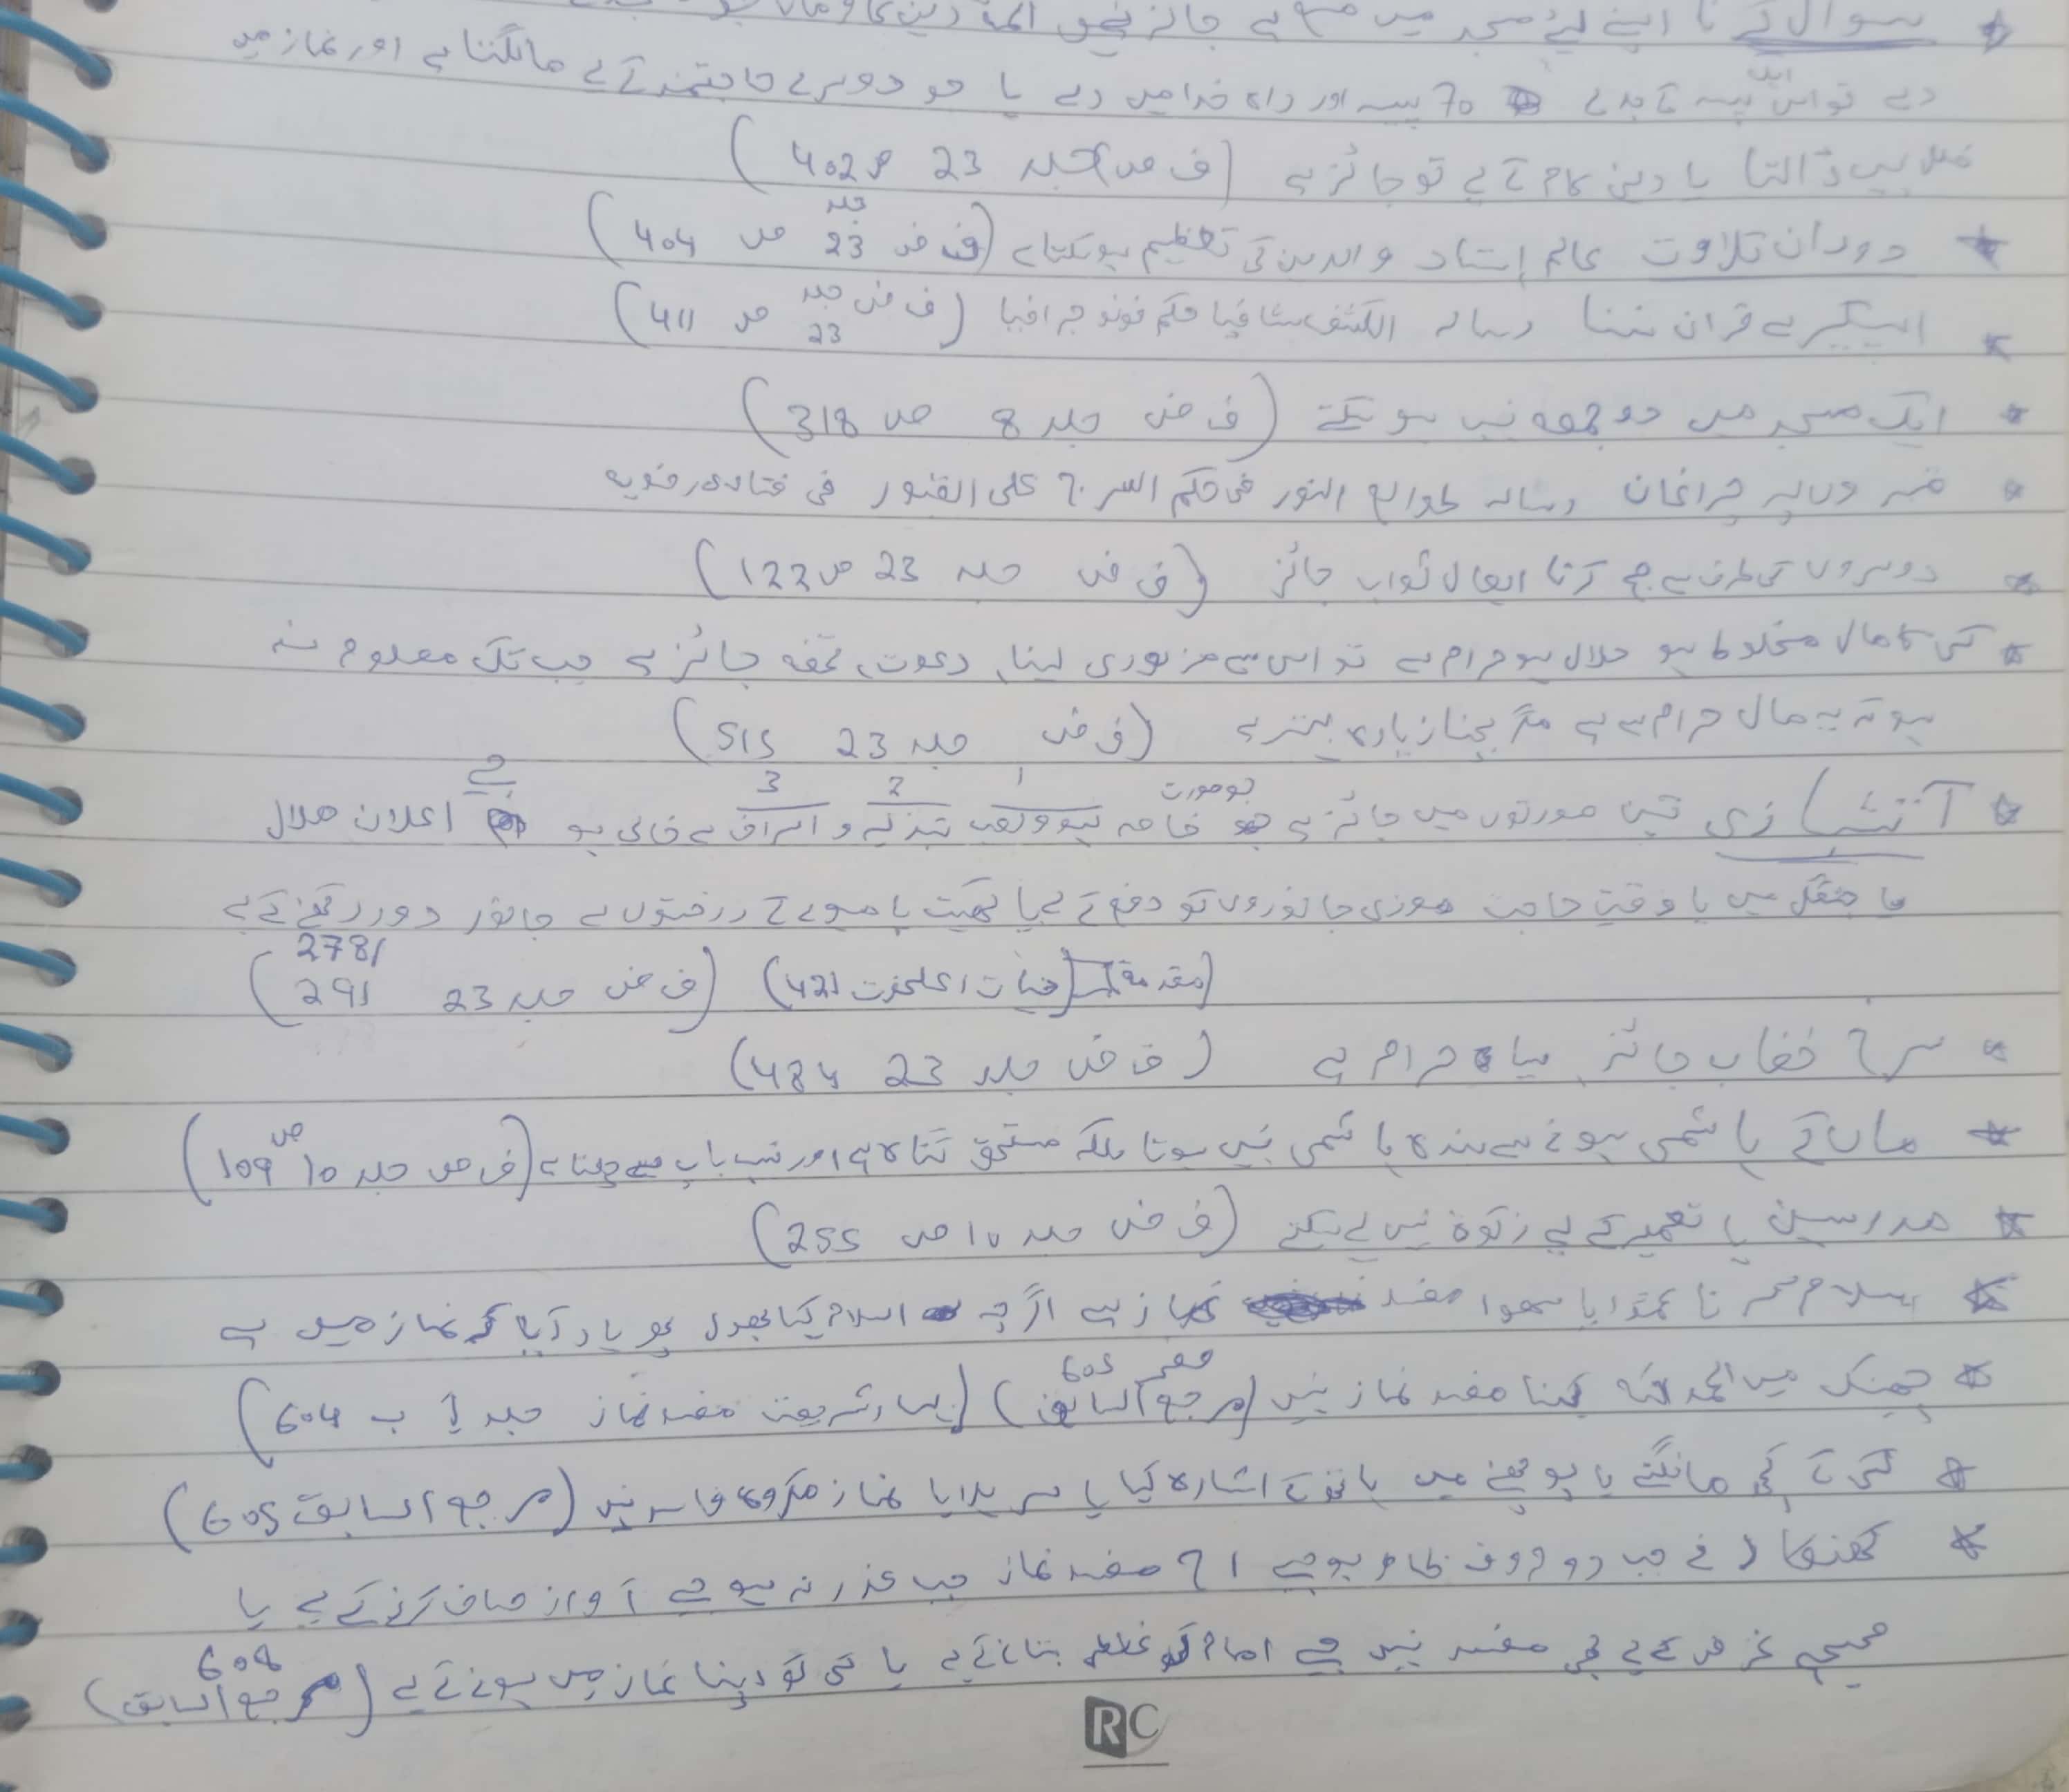 سوال کے نا اپنے لیئے مسجد میں منع ہے جائز نہیں ائمہ دین
دے تو اس ایک پیسہ کے بدلے 70 پیسہ اور راہ خدا میں دے یا جو دوسرے حاجتمند کے لے مانگتا ہے اور نماز میں
خلل نہیں ڈالتا یا دینی کام کے لے تو جائز ہے (ف ض جلد 23 ص 402)
دوران تلاوت عالم استاد والدین کی تعظیم ہو سکتا ہے (ف ض جلد 23 ص 404)
اسپیکر سے قران سننا رسالہ الکشف شافیا حکم فونو جرافیا (ف ض جلد 23 ص 411)
ایک مسجد میں دو جمعہ نہیں ہو سکتے (ف ض جلد 8 ص 318)
قبروں پہ چراغان رسالہ طوالع النور فی حکم السرج علی القبور فی فتاوی رضویہ
دوسروں کی طرف سے حج کرنا ایصال ثواب جائز (ف ض جلد 23 ص 122)
کسی کا مال مخلوط ہو حلال ہو حرام سے تو اس سے مزدوری لینا، دعوت، تحفہ جائز ہے جب تک معلوم نہ
ہو کہ یہ مال حرام سے ہے مگر بچنا زیادہ بہتر ہے (ف ض جلد 23 515)
آتشبازی تین صورتوں میں جائز ہے جو صورت خاصہ لہو و لعب 1 تبذیر 2 و اسراف 3 سے خالی ہو جے اعلان ھلال
یا جنگل میں یا وقت حاجت موزی جانوروں کو دفع کے لے یا کھیت یا میوے کے درختوں سے جانور دور رکھنے کے لے
(مقدمہ) (حیات اعلحضرت 421) (ف ض جلد 23 278/ 291)
سرخ خضاب جائز سیاہ حرام ہے (ف ض جلد 23 484)
ماں کے ہاشمی ہونے سے بندہ ہاشمی نہیں ہوتا بلکہ مستحق گناہ ہے اور نسب باپ سے چلتا ہے (ف ض جلد 10 ص 109)
مدرسین یا تعمیر کے لے زکوۃ نہیں لے سکتے (ف ض جلد 10 ص 255)
سلام کرنا عمدا یا سھوا مفسد نماز ہے اگرچہ السلام کہا بھول پھر یاد آیا کہ نماز میں ہے
چھینک میں الحمد للہ کہنا مفسد نماز نہیں (مرجع السابق صفحہ 605) (بہار شریعت مفسد نماز جلد 1 ب 604)
کسی کے کچھ مانگنے یا پوچھنے میں ہاتھ کے اشارہ کیا یا سر ہلایا نماز مکروہ فاسد نہیں (مرجع السابق 605)
کھنکارنے جب دو حروف ظاہر ہو جے اح مفسد نماز جب عذر نہ ہو جے آواز صاف کرنے کے لے یا
صحیح غرض کے لے بھی مفسد نہیں جے امام کو غلطی بتانے کے لے یا کسی کو اپنا نماز میں ہونے کے لے (مرجع السابق 608)
RC